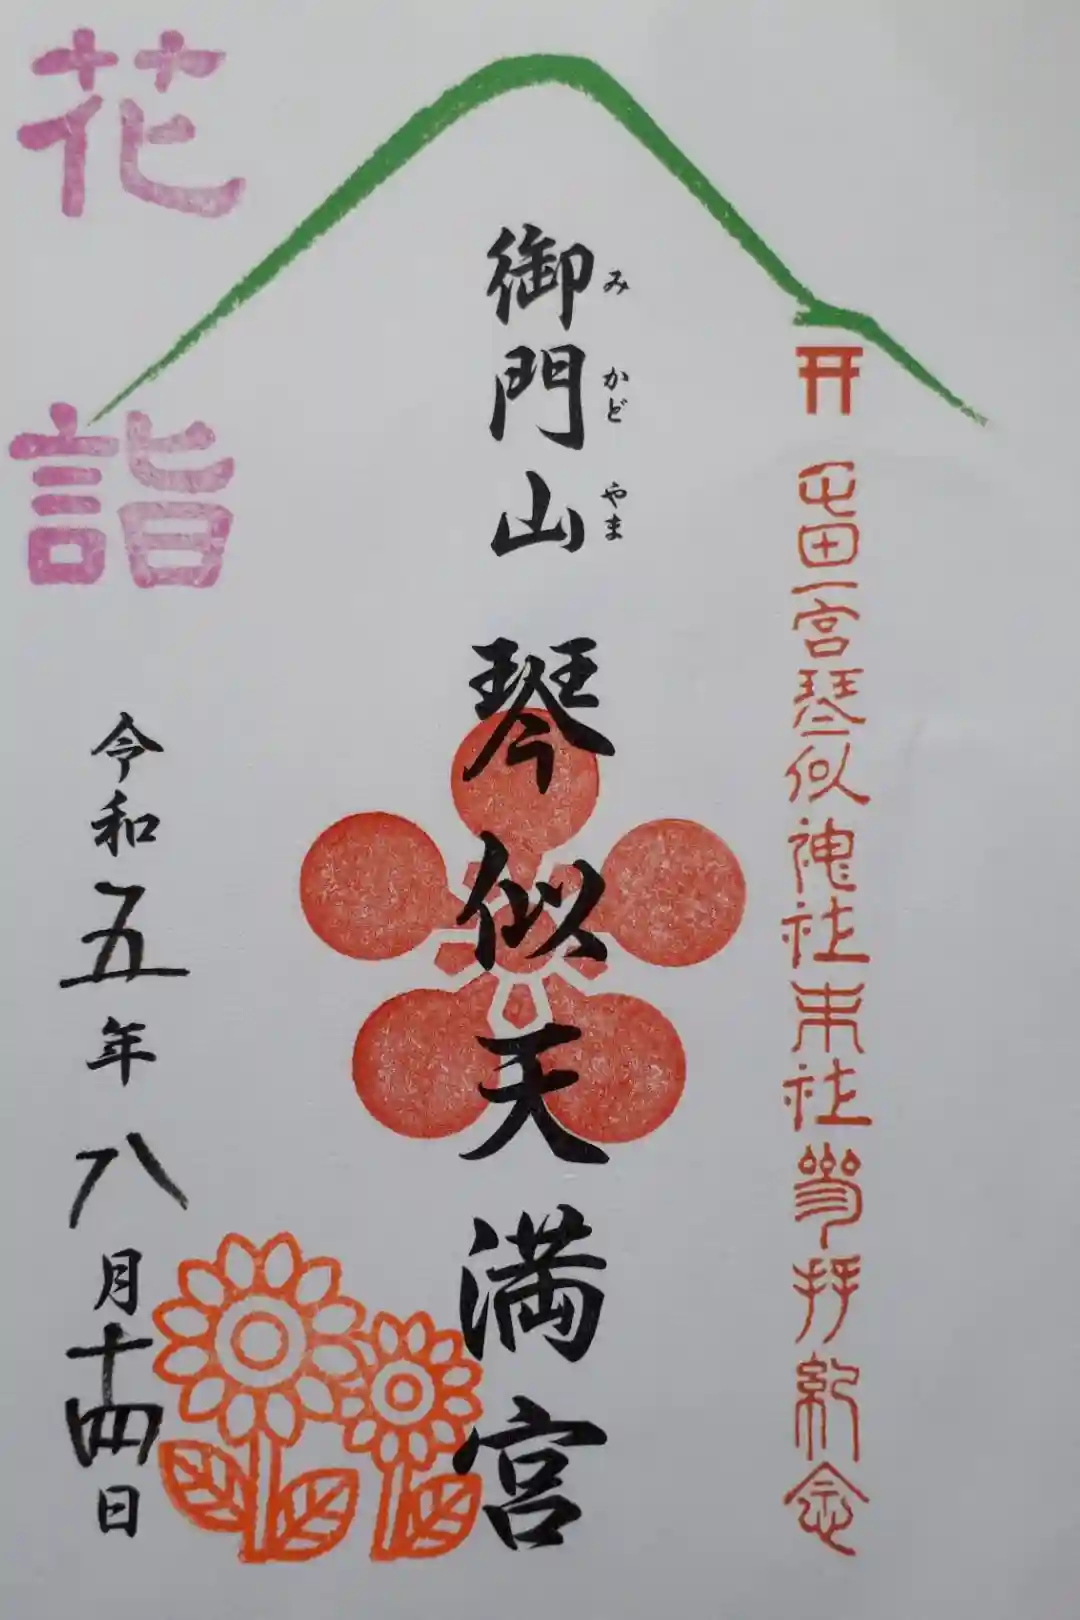 屯田一宮琴似神社末社参拝紀念
御門山 琴似天満宮
み かど やま
令和五年八月十四日
花詣